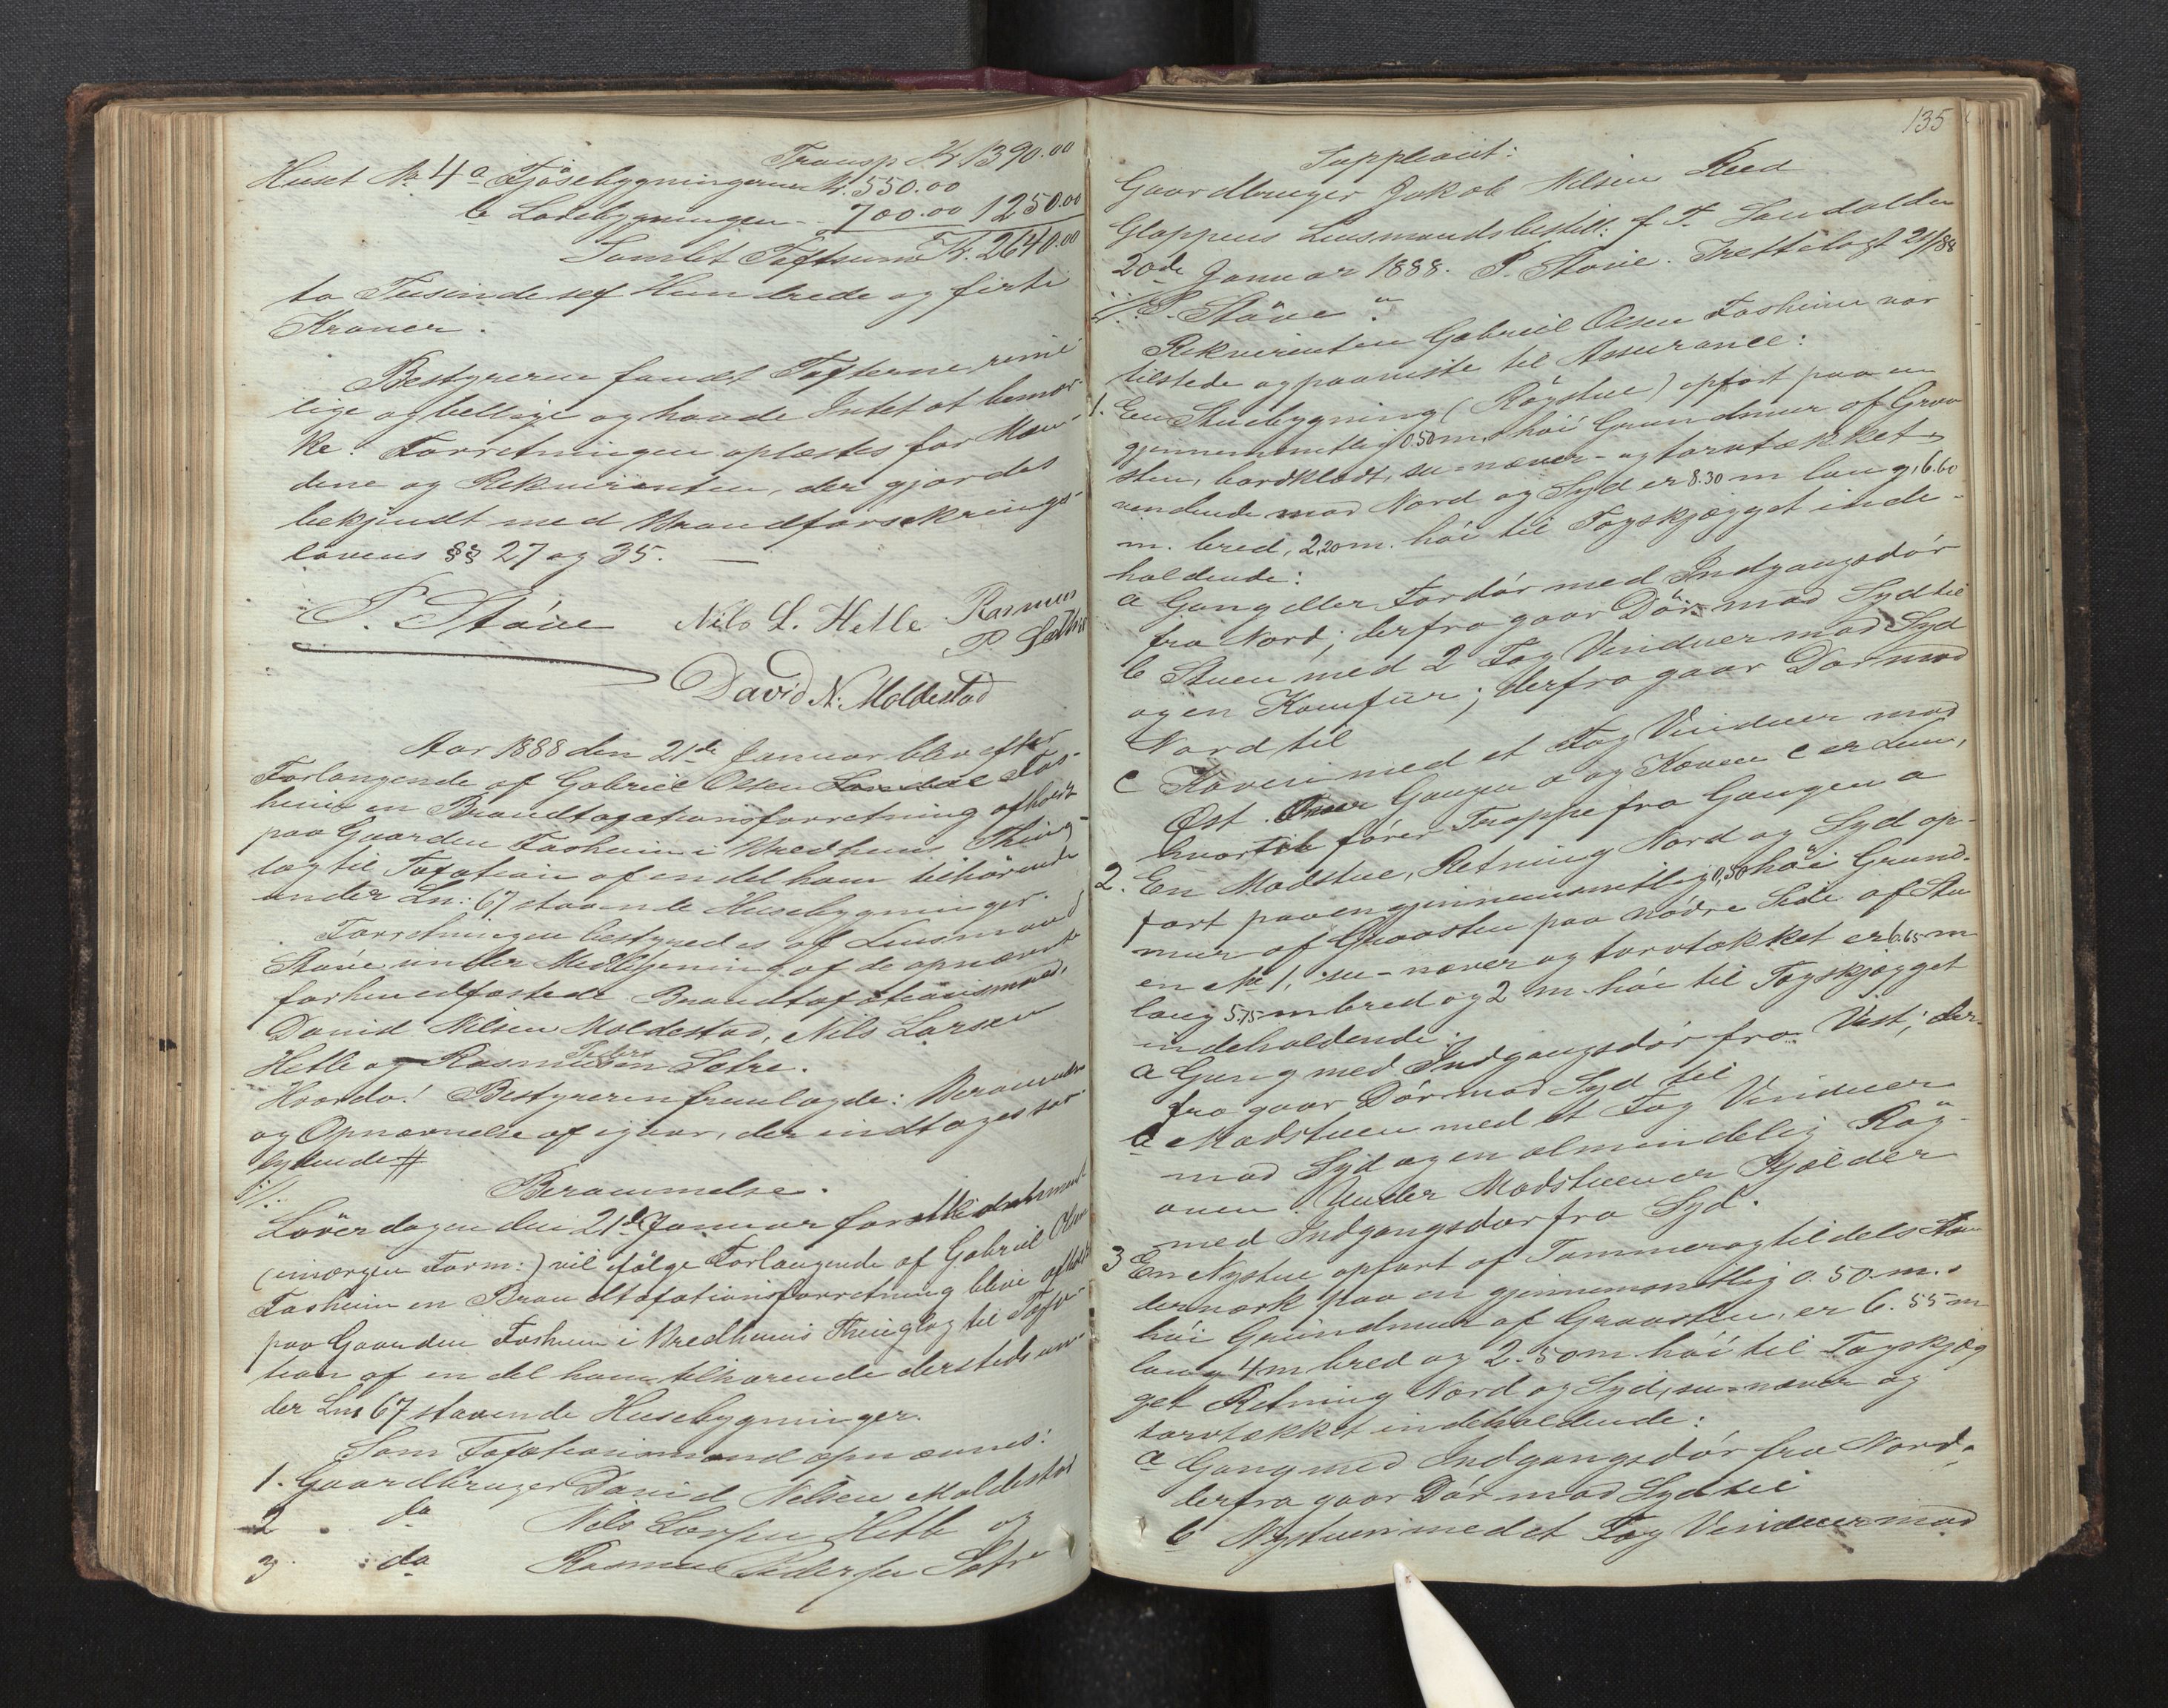 Transp Kr. 1390.00
Huset No 4 a Fjösebygningerne Kr. 550.00
b Ladebygningen - 700.00 1250.00
Samlet Taxtsum Kr. 2640.00
to Tusinde sex Hundrede og firti
Kroner.
Bestyreren fandt Taxterne rime
lige og billige og havde Intet at bemær-
ke. Forretningen oplæstes for Mæn-
dene og Rekvirenten, der gjordes
bekjendt med Brandforsikrings-
lovens §§ 27 og 35. —
P. Stöve Nils L. Hetle Rasmus
P Sætre
David N. Moldestad
Aar 1888 den 21de Januar blev efter
Forlangende af Gabriel Olsen Fos-
heim en Brandtaxationsforretning afholdt
paa Gaarden Fosheim i Bredheims Thing-
lag til Taxation af en del ham tilhörende
under Ln: 67 staaende Husebygninger.
Forretningen bestyredes af Lensmand
Stöve under Medbetjening af de opnævnte
forhen edfæstede Brandtaxationsmænd,
David Nilsen Moldestad, Nils Larsen
Hetle og Rasmus Peders en Sætre.
Hvorda! Bestyreren fremlagde: Berammelse
og Opnævnelse af igaar, der indtages saa-
lydende #
:/:
Berammelse.
Löverdagen den 21de Januar
(imorgen Form:) vil ifölge Forlangende af Gabriel Olsen
Fosheim en Brandtaxationsforretning blive afholdt
paa Gaarden Fosheim i Bredheims Thinglag til Taxa-
tion af en del ham tilhørende dersteds un-
der Lno 67 staaende Husebygninger.
Som Taxationsmænd opnævnes:
1. Gaardbruger David Nilsen Moldestad
2 do Nils Larsen Hetle og
3 do Rasmus Pedersen Sætre
135
Suppleant:
Gaardbruger Jakob Nilsen Reed
Gloppens Lensmandsbestill: f. T. Sandalden
20de Januar 1888. P. Stöve. Rettelagt 21/1 88
:/: P. Stöve."
Rekvirenten Gabriel Olsen Fosheim var
tilstede og paaviste til Assurance:
1. En Stuebygning (Rögstue) opført paa en
gjennemsnitlig 0.50 m. höi Grundmur af Graa
sten, bordklædt, su-næver- og torvtækket,
vendende mod Nord og Syd er 8.30 m lang, 6.60
m. bred, 2,20 m. höi til Tagskjægget inde-
holdende:
a Gang eller Fordör med Indgangsdör
fra Nord; derfra gaar Dör mod Syd til
b Stuen med 2 Fag Vinduer mod Syd
og en Komfür; derfra gaar Dør mod
Nord til
c Koven med et Fag Vinduer mod
Øst. Over Gangen a og Koven c er Lem,
hvortil fører Trappe fra Gangen a
2. En Madstue, Retning Nord og Syd op-
ført paa en gjennemsnitlig 0,50 höi Grund-
mur af Graasten paa nödre Side af Stu
en No 1, su-næver og torvtækket er 6.65 m
lang 5,75 m bred og 2 m. höi til Tagskjægget
indeholdende:
a Gang med Indgangsdör fra Vest; der-
fra gaar Dör mod Syd til
b Madstuen med et Fag Vinduer
mod Syd og en almindelig Rög-
oven. Under Madstuen er Kjælder
med Indgangsdør fra Syd.
3 En Nystue opført af Tømmer og tildels Stæn
derværk paa en gjennemsnitlig 0.50 m.
höi Grundmur af Graasten, er 6.55 m
lang 4 m bred og 2.50 m höi til Tagskjæg
get Retning Nord og Syd, su-næver og
torvtækket indeholdende:
a Gang med Indgangsdör fra Nord,
derfra gaar Dör mod Syd til
b Nystuen med et Fag Vinduer mod